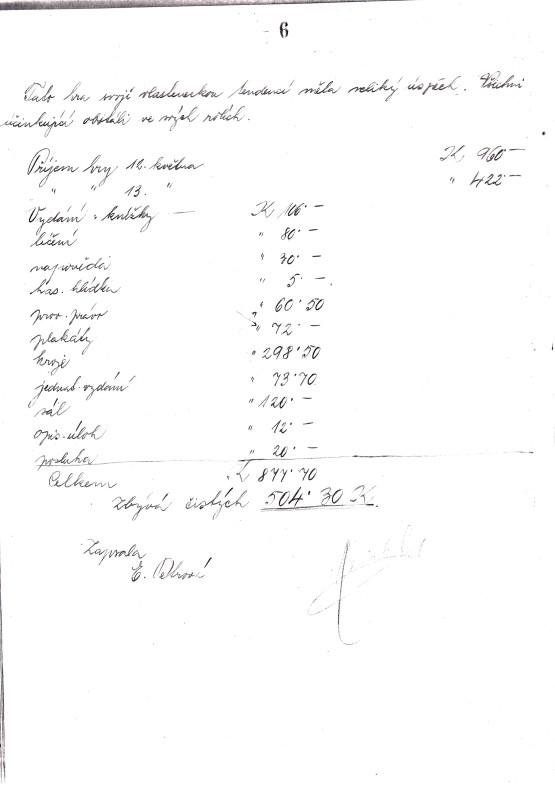 6
Tato hra svojí vlasteneckou tendencí měla veliký úspěch. Všichni
účinkující obstáli ve svých rolích.
Příjem hry 12. května K 960·—
" " 13. " " 422·—
Vydání: knížky — K 106·—
líčení " 80·—
napověda " 30·—
has. hlídka " 5·—
prov. právo " 60·50
plakáty " 72·—
kroje " 298·50
jednat. vydání " 73·70
sál " 120·—
opis. úloh " 12·—
posluha " 20·—
Celkem K 877·70
Zbývá čistých 504·30 K.
Zapsala
E. Petrová